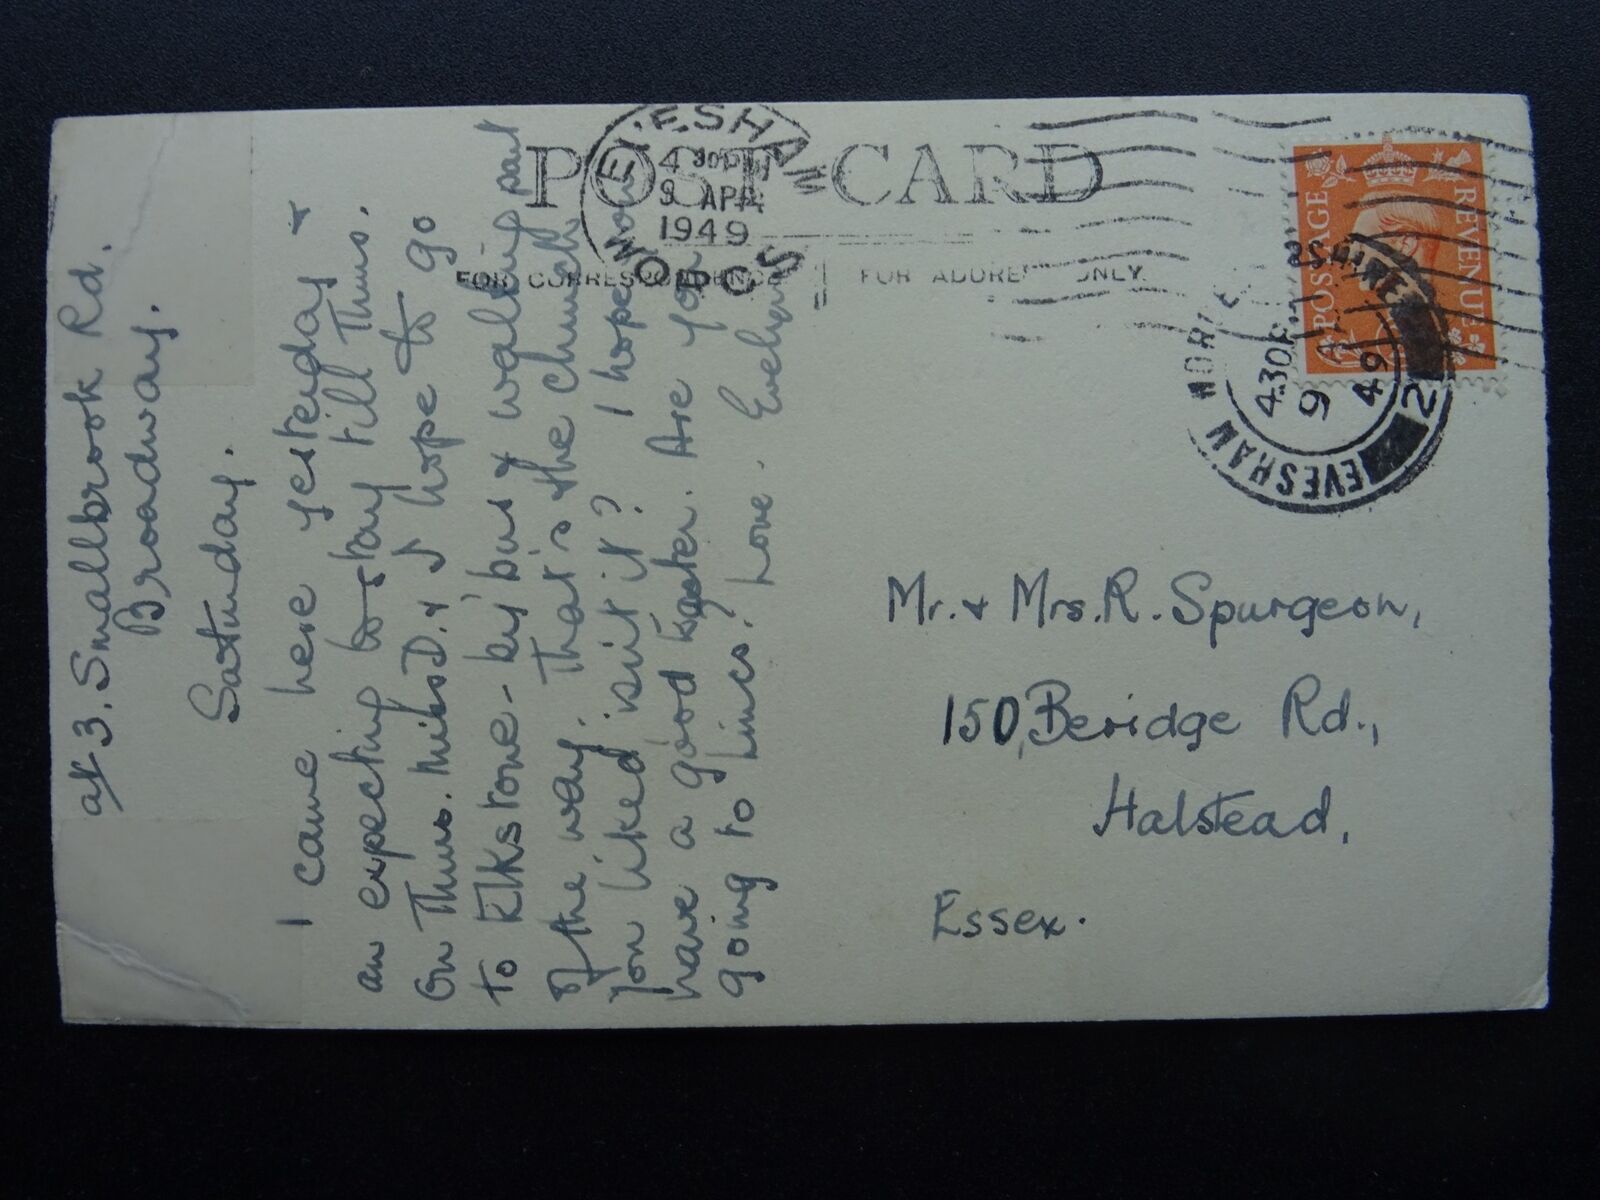 POST CARD
FOR CORRESPONDENCE
FOR ADDRESS ONLY
EVESHAM
4 30PM
9 APR
1949
WORCS
POSTAGE
REVENUE
EVESHAM WORCESTERSHIRE
4.30P.
9
49
2
at 3. Smallbrook Rd.
Broadway.
Saturday.
I came here yesterday &
am expecting to stay till Thurs.
On Thurs. Miss D. & I hope to go
to Elkstone - by bus & walking part
of the way. That's the church
you liked isn't it? I hope you
have a good Easter. Are you
going to Lincs? Love. Evelyn
Mr. & Mrs. R. Spurgeon,
150, Beridge Rd.,
Halstead,
Essex.